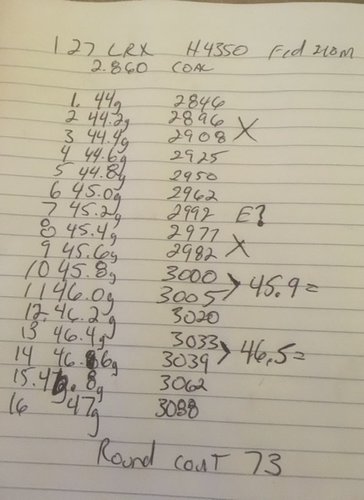 127 LRX H4350 Fed 210M
2.860 COAL
1. 44g 2846
2 44.2g 2896
3 44.4g 2908 X
4 44.6g 2925
5 44.8g 2950
6 45.0g 2962
7 45.2g 2992 E?
8 45.4g 2977
9 45.6g 2982 X
10 45.8g 3000
11 46.0g 3005 > 45.9=
12. 46.2g 3020
13 46.4g 3033
14 46.6g 3039 > 46.5=
15. 8g 3062
16 47g 3088
Round count 73